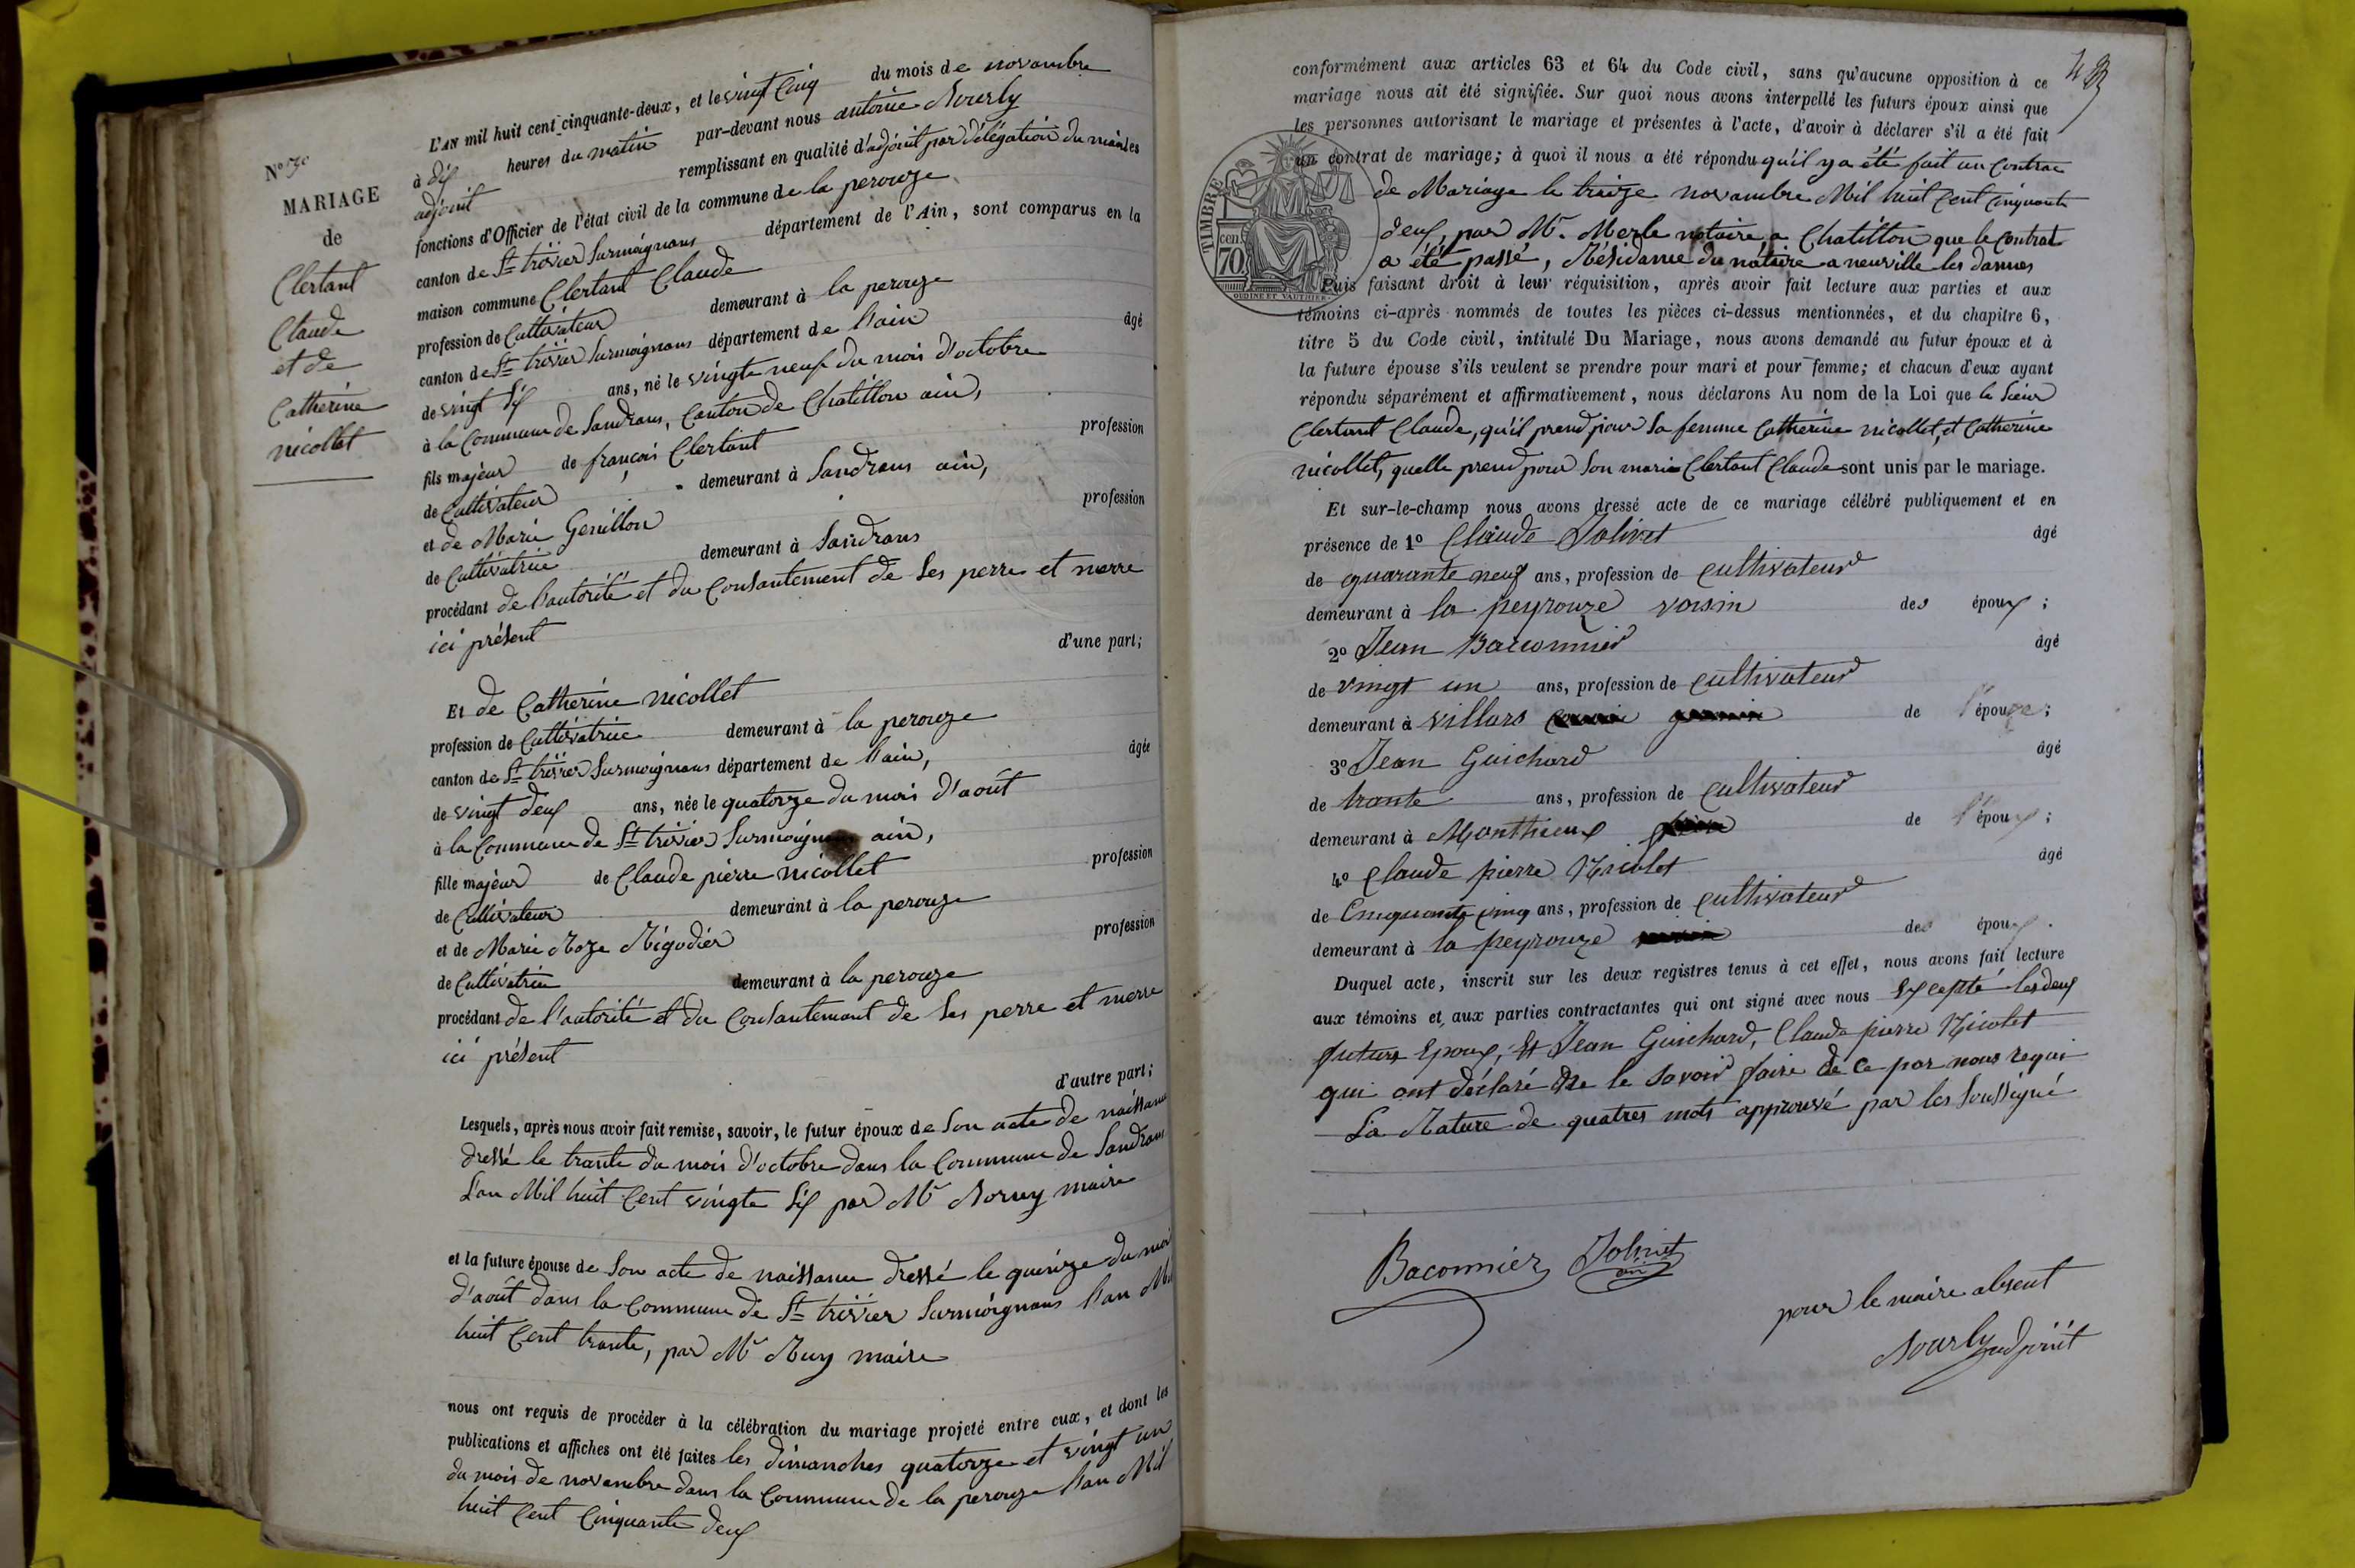 L'AN mil huit cent cinquante-deux, et le vingt cinq du mois de novambre
à dix heures du matin par-devant nous antoine Nourly
adjoint remplissant en qualité d'adjoint par délégation du maire les
fonctions d'Officier de l'état civil de la commune de la perouze
canton de St trivier Surmoignans département de l'Ain, sont comparus en la
maison commune Clertant Claude
profession de Cultivateur demeurant à la perouze
canton de St trivier Surmoignans département de l'ain âgé
de vingt six ans, né le vingte neuf du mois d'octobre
à la Commune de Sandrans, Canton de Chatillon ain,
fils majeur de françois Clertant profession
de Cultivateur demeurant à Sandrans ain,
et de Marie Genillon profession
de Cultivatrice demeurant à Sandrans
procédant de l'autorité et du Consantement de Ses perre et merre
ici présent d'une part;
Et de Catherine nicollet
profession de Cultivatrice demeurant à la perouze
canton de St trivier Surmoignans département de l'ain, âgée
de vingt deux ans, née le quatorze du mois d'août
à la Commune de St trivier Surmoignans ain,
fille majeur de Claude pierre nicollet profession
de Cultivateur demeurant à la perouze
et de Marie Roze Rigodier profession
de Cultivatrice demeurant à la perouze
procédant de l'autorité et du Consantement de Ses perre et merre
ici présent
d'autre part;
Lesquels, après nous avoir fait remise, savoir, le futur époux de Son acte de naissance
dressé le trante du mois d'octobre dans la Commune de Sandrans
L'an Mil huit Cent vingte Six par Mr maire
et la future épouse de Son acte de naissance dressé le quinze du moi
d'août dans la Commune de St trivier Surmoignans l'an Mil
huit Cent trante, par Mr Ruy maire
nous ont requis de procéder à la célébration du mariage projeté entre eux, et dont les
publications et affiches ont été faites les dimanches quatorze et vingt un
du mois de novambre dans la Commune de la perouze l'an Mil
huit Cent Cinquante deux
No
MARIAGE
de
Clertant
Claude
et de
Catherine
nicollet
conformément aux articles 63 et 64 du Code civil, sans qu'aucune opposition à ce
mariage nous ait été signifiée. Sur quoi nous avons interpellé les futurs époux ainsi que
les personnes autorisant le mariage et présentes à l'acte, d'avoir à déclarer s'il a été fait
un contrat de mariage; à quoi il nous a été répondu qu'il y a été fait un Contrac
de Mariage le traize novambre Mil huit Cent Cinquante
deux, par Mr. Merle notaire a Chatillon que le Contrat
a été passé, Résidance du notaire a neuville les dames
Puis faisant droit à leur réquisition, après avoir fait lecture aux parties et aux
témoins ci-après nommés de toutes les pièces ci-dessus mentionnées, et du chapitre 6,
titre 5 du Code civil, intitulé Du Mariage, nous avons demandé au futur époux et à
la future épouse s'ils veulent se prendre pour mari et pour femme; et chacun d'eux ayant
répondu séparément et affirmativement, nous déclarons Au nom de la Loi que le Sieur
Clertant Claude, qu'il prend pour Sa femme Catherine nicollet, et Catherine
nicollet, quelle prend pour Son marie Clertant Claude sont unis par le mariage.
Et sur-le-champ nous avons dressé acte de ce mariage célébré publiquement et en
présence de 1º Claude Jolivet âgé
de quarante neuf ans, profession de Cultivateur
demeurant à la peyrouze voisin des époux;
2º Jean Baconnier âgé
de vingt un ans, profession de Cultivateur
demeurant à villars de l'épouze;
3º Jean Guichard âgé
de trante ans, profession de Cultivateur
demeurant à Monthieux de l'époux;
4º Claude pierre Nicolet âgé
de Cinquante cinq ans, profession de Cultivateur
demeurant à la peyrouze des époux.
Duquel acte, inscrit sur les deux registres tenus à cet effet, nous avons fait lecture
aux témoins et aux parties contractantes qui ont signé avec nous Excepté les deux
futurs Epoux, Et Jean Guichard, Claude pierre Nicolet
qui ont déclaré Ne le Savoir faire de Ce par nous requi
La Rature de quatres mots approuvé par les Soussigné
Baconnier Jolivet
pour le maire absent
Nourly adjoint
TIMBRE
cen.
70
OUDINE ET VAUTHIER